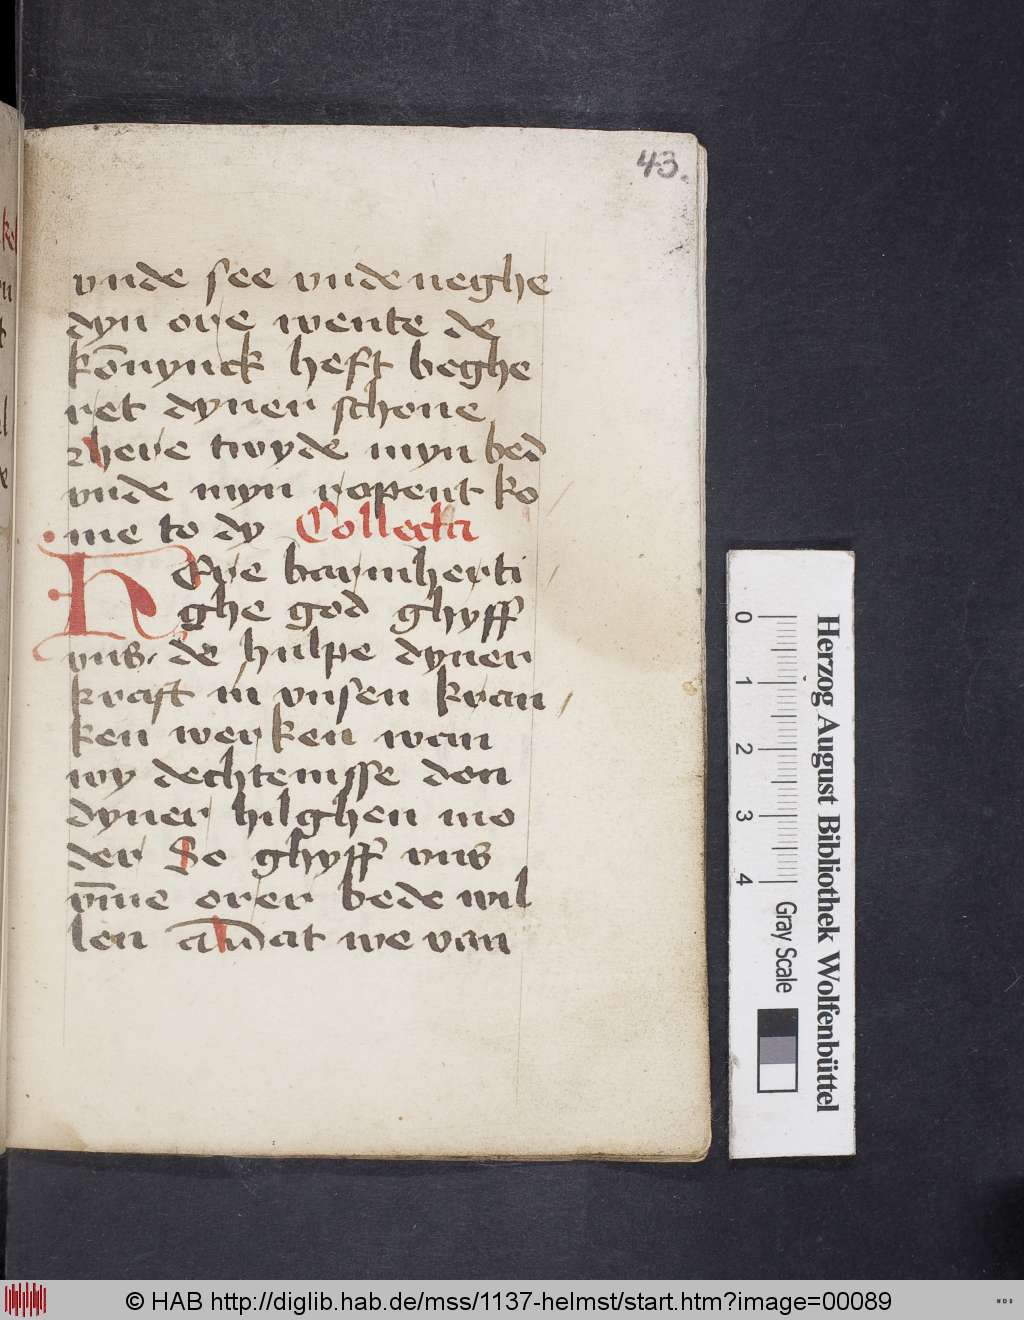 43.
vnde see vnde neghe
dyn ore wente de
kōnynck heft beghe
ret dyner schone
here twyde myn bed
vnde myn ropent ko
me to dy Collecta
HEre barmherti
ghe god ghyff
vns de hulpe dyner
kraft in vnsen kran
ken werken wan
wy dechtenisse don
dyner hilghen mo
der So ghyff vns
vm̄e orer bede wil
len dat we van
0 1 2 3 4
Gray Scale
Herzog August Bibliothek Wolfenbüttel
© HAB http://diglib.hab.de/mss/1137-helmst/start.htm?image=00089